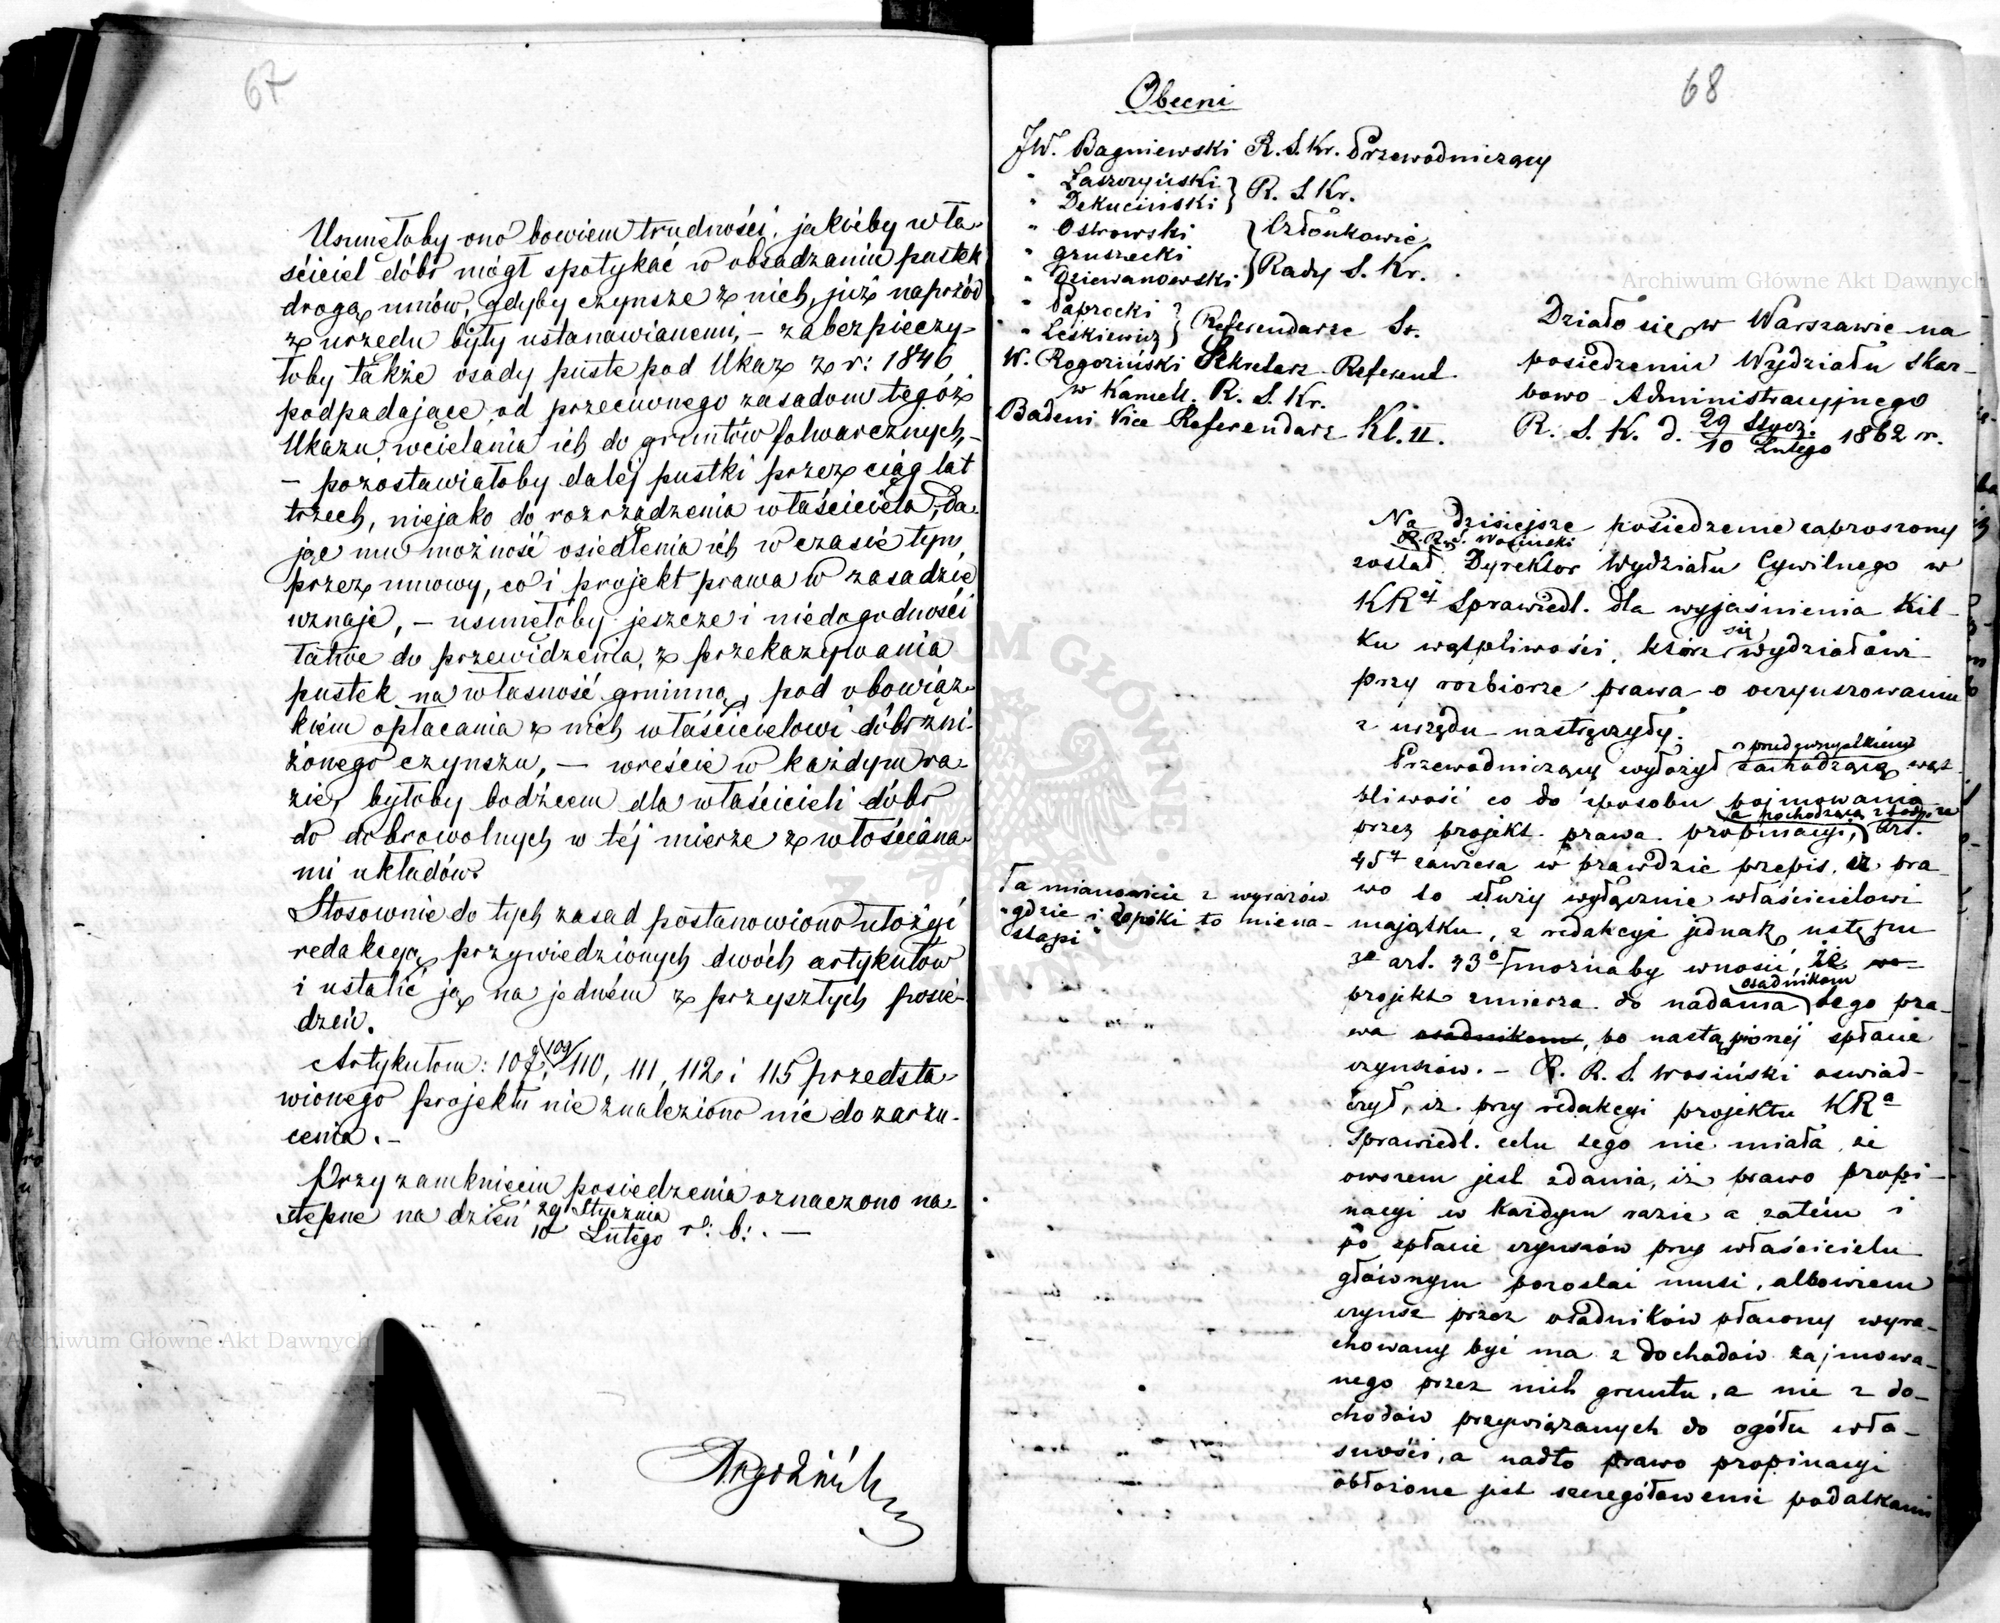 67
Usunęłoby ono bowiem trudności, jakieby wła-
ściciel dóbr mógł spotykać w obsadzaniu pustek
drogą umów, gdyby czynsze z nich, już naprzód
z urzędu były ustanawianemi, – zabezpieczy-
łoby także osady puste pod Ukaz z r: 1846
podpadające, od przeciwnego zasadom tegóż
Ukazu, wcielania ich do gruntów folwarcznych, –
– pozostawiałoby dalej pustki przez ciąg lat
trzech, niejako do rozrządzenia właściciela, da-
jąc mu możność osiedlenia ich w czasie tym,
przez umowy, co i projekt prawa w zasadzie
uznaje, – usunęłoby jeszcze i niedogodności
łatwe do przewidzenia, z przekazywania
pustek na własność gminną, pod obowiąz-
kiem opłacania z nich właścicielowi dóbr zni-
żonego czynszu, – wreście w każdym ra-
zie, byłoby bodźcem dla właścicieli dóbr
do dobrowolnych w téj mierze z włościana-
mi układów.
Stosownie do tych zasad postanowiono ułożyć
redakcyą przywiedzionych dwóch artykułów
i ustalić ją na jedném z przyszłych posie-
dzeń.
Artykułom: 107, 109 110, 111, 112 i 115 przedsta-
wionego projektu nie znaleziono nic do zarzu-
cenia. –
Przy zamknięciu posiedzenia oznaczono na-
stępne na dzień 29 Stycznia
10 Lutego r: b: . –
68
Obecni
JW. Bagniewski R. S. Kr. Przewodniczący
" Łaszczyński
" Dekuciński } R. S. Kr.
" Ostrowski } Członkowie
" Gruszecki
" Dziewanowski } Rady S. Kr.
" Paprocki
" Leśkiewicz } Referendarze St.
W. Rogoziński Sekretarz Referent
w Kancell. R. S. Kr.
Badeni Vice Referendarz Kl. II.
Działo się w Warszawie na
posiedzeniu Wydziału Skar-
bowo-Administracyjnego
R. S. K. d. 29 Stycz.
10 Lutego 1862 r.
Na dzisiejsze posiedzenie zaproszony
R. R. S. Wosiński
został Dyrektor Wydziału Cywilnego w
KRyi Sprawiedl. dla wyjaśnienia kil-
ku wątpliwości, które się wydziałowi
przy rozbiorze prawa o oczynszowaniu
z urzędu nastręczyły.
Przewodniczący wyłożył zachodzącą wąt-
pliwość co do sposobu pojmowania
przez projekt prawa propinacyi, art.
45y zawiera w prawdzie przepis, iż pra-
wo to służy wyłącznie właścicielowi
majątku, z redakcyi jednak ustępu
3o art. 43o możnaby wnosić, że
ta mianowicie z wyrazów
"gdzie i dopóki to niena-
stąpi"
osadnikom
projekt zmierza do nadania tego pra-
wa osadnikom, po nastąpionéj spłacie
czynszów. – R. R. S. Wosiński oświad-
czył, iż przy redakcyi projektu KRa
Sprawiedl. celu tego nie miała, że
owszem jest zdania, iż prawo propi-
nacyi w każdym razie a zatém i
po spłacie czynszów przy właścicielu
głównym pozostać musi, albowiem
czynsz przez osadników płacony wyra-
chowany być ma z dochodów zajmowa-
nego przez nich gruntu, a nie z do-
chodów przywiązanych do ogółu wła-
sności, a nadto prawo propinacyi
obłożone jest szczegółowemi podatkami
Archiwum Główne Akt Dawnych
Archiwum Główne Akt Dawnych